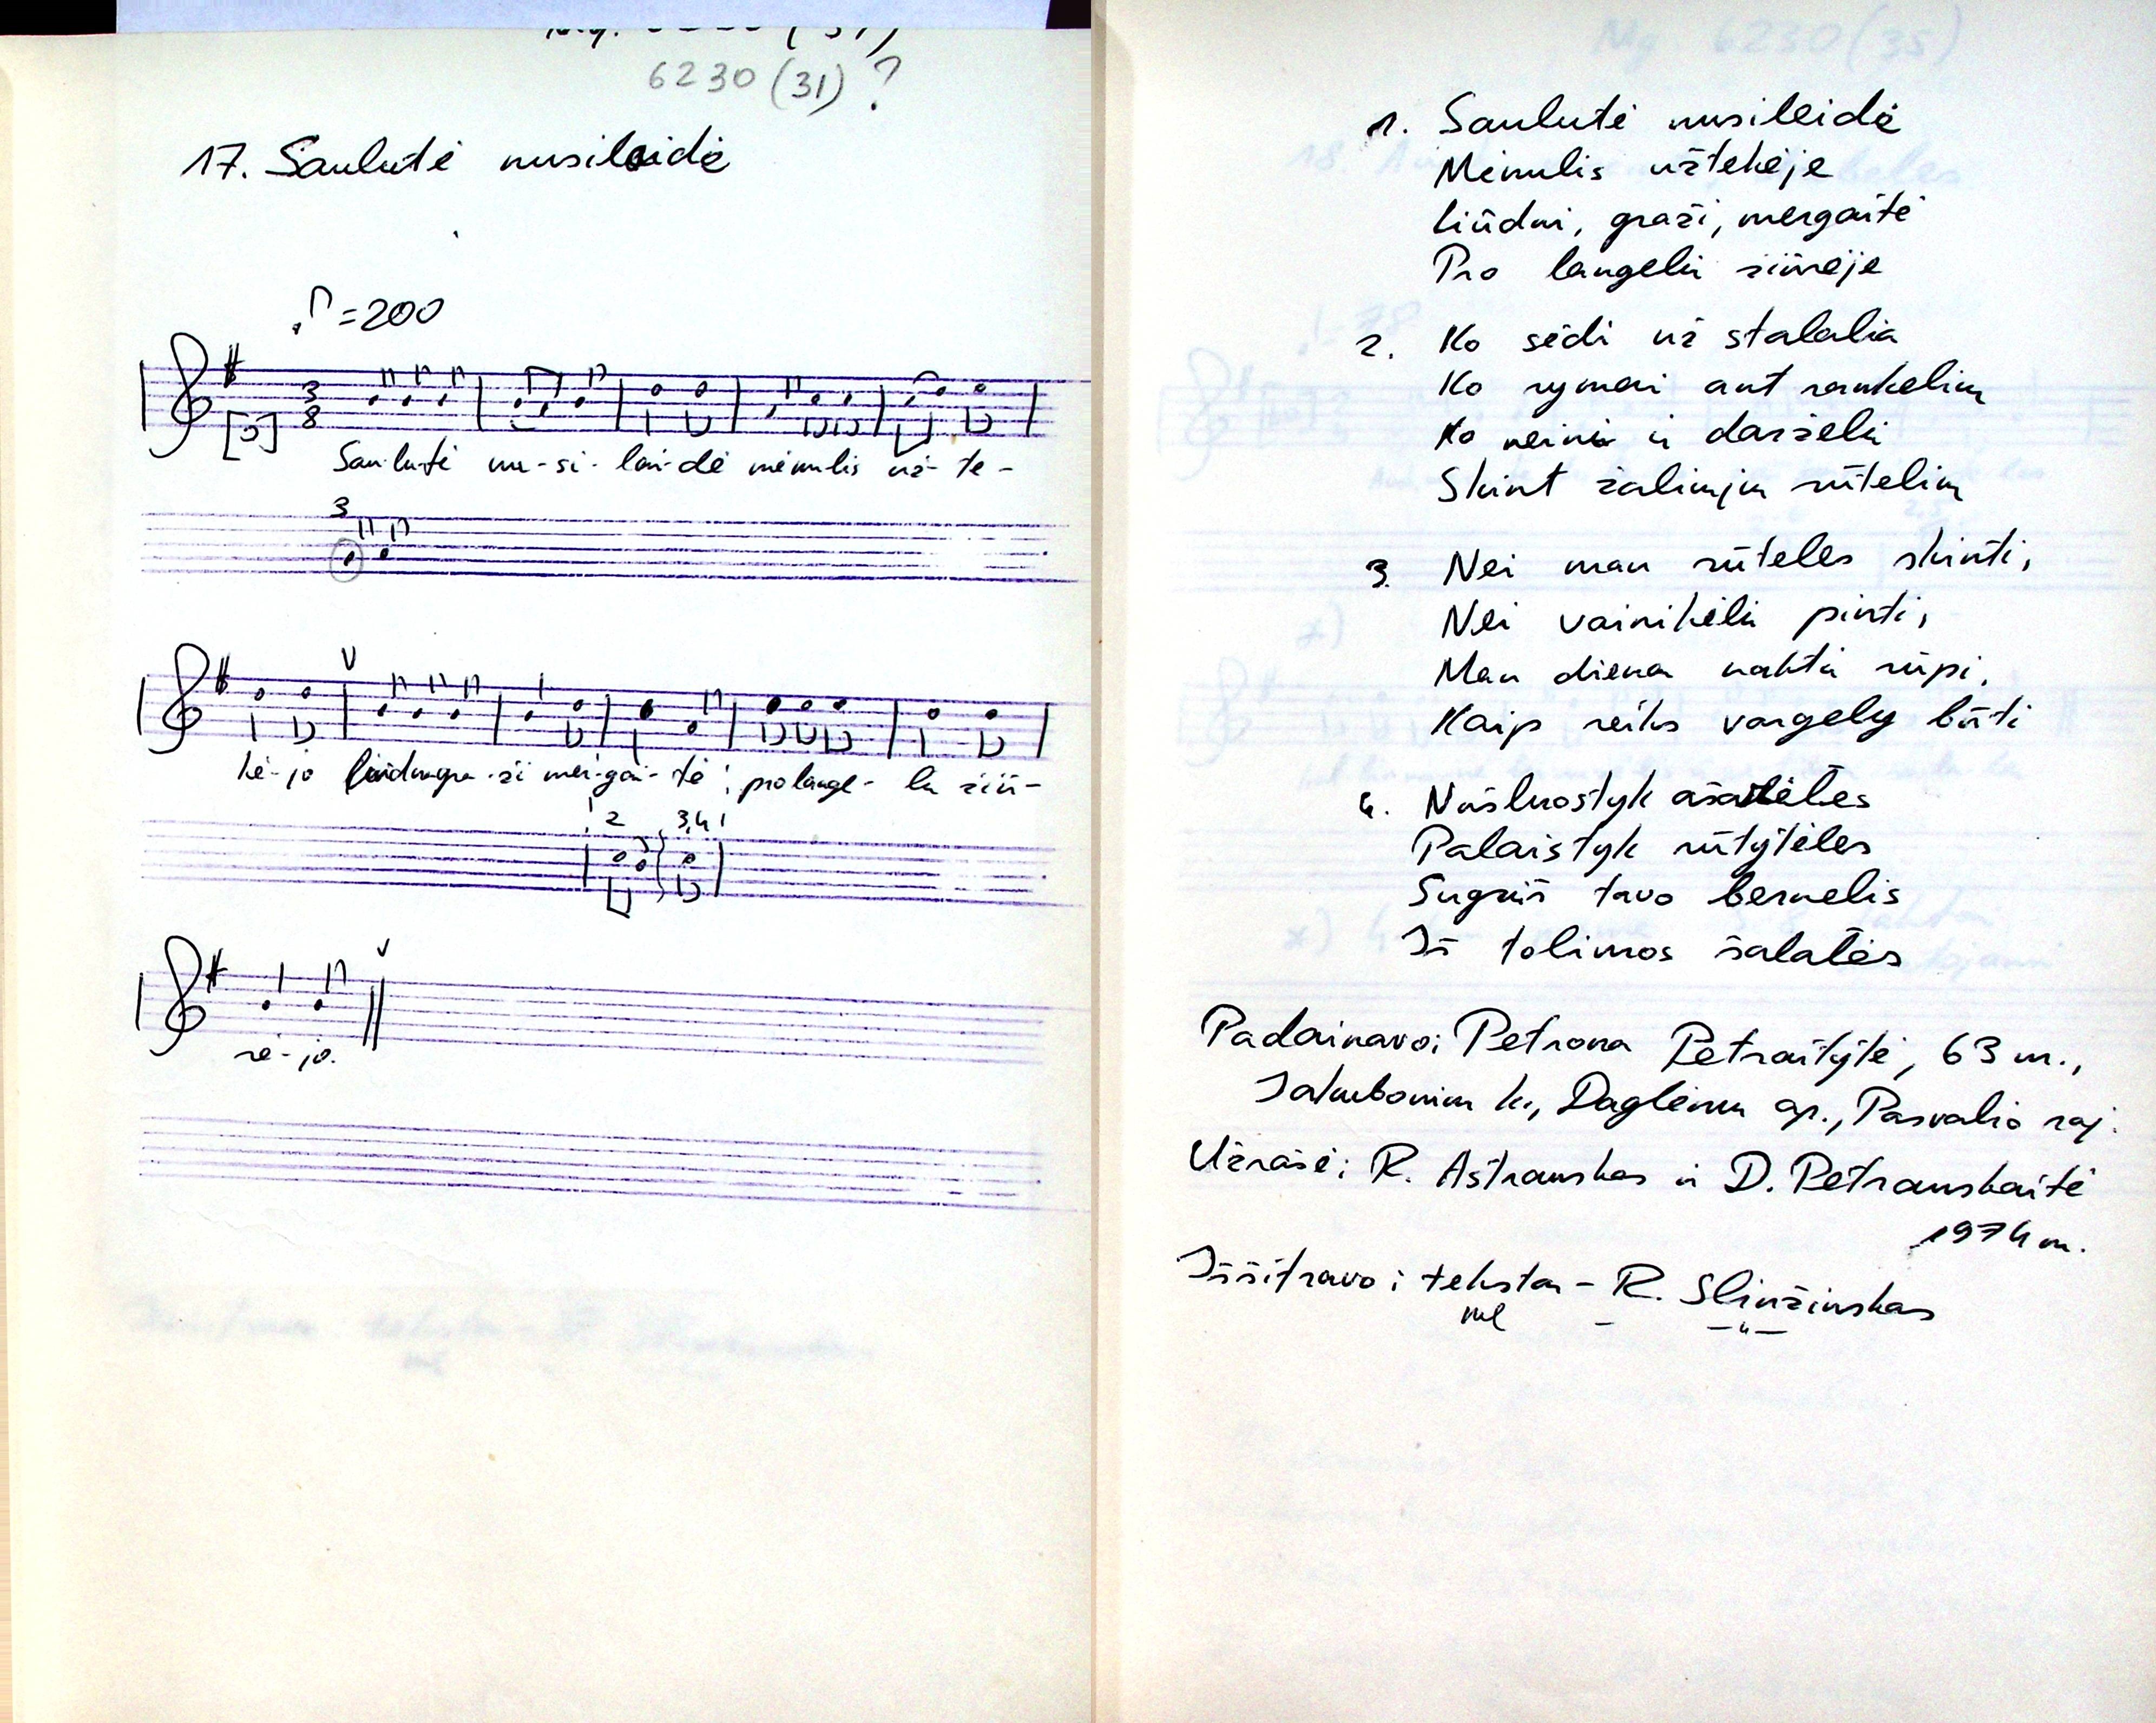 6230 (31) ?
17. Saulutė nusileidė
♪=200
[5] 3/8
Sau-lu-tė nu-si-lai-dė mėnulis už-te-
3
kė-jo liūdnagra-ži mer-gai-tė; pro lange-lu žiū-
2 3,4
rė-jo.
1. Saulutė nusileidė
Mėnulis užtekėje
Liūdni, graži, mergaitė
Pro langelu žiūrėje
2. Ko sėdi už stalalia
Ko rymai ant rankeliu
Ko neini i darželi
Skint žaliuju rūteliu
3. Nei man rūteles skinti,
Nei vainikėli pinti,
Man diena nakti rūpi,
Kaip reiks vargely būti
4. Nušluostyk ašarėles
Palaistyk rūtytėles
Sugriš tavo bernelis
Iš tolimos šalalės
Padainavo: Petrona Petraitytė, 63 m.,
Jakuboniu k., Daglėnu ap., Pasvalio raj.
Užrašė: R. Astrauskas ir D. Petrauskaitė
1974 m.
Iššifravo: teksta - R. Sliužinskas
mel - — " —